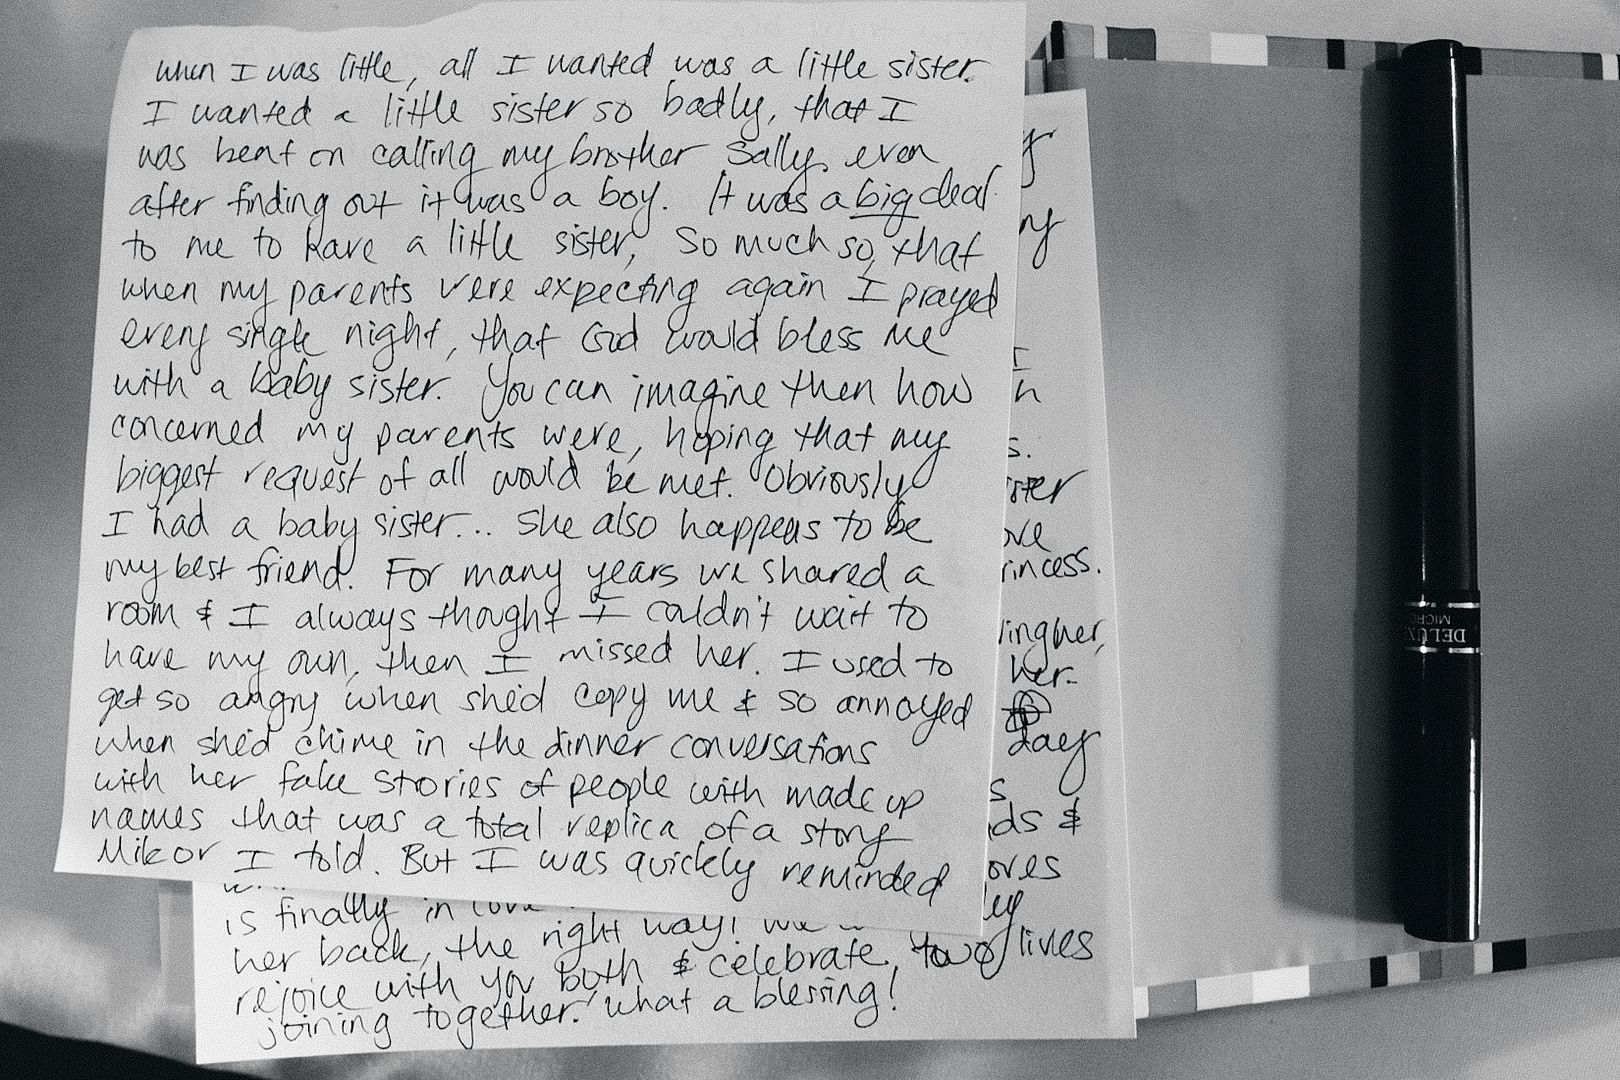 when I was little, all I wanted was a little sister.
I wanted a little sister so badly, that I
was bent on calling my brother Sally, even
after finding out it was a boy. It was a big deal
to me to have a little sister, so much so, that
when my parents were expecting again I prayed
every single night, that God would bless me
with a baby sister. You can imagine then how
concerned my parents were, hoping that my
biggest request of all would be met. Obviously
I had a baby sister... she also happens to be
my best friend. For many years we shared a
room & I always thought I couldn't wait to
have my own, then I missed her. I used to
get so angry when she'd copy me & so annoyed
when she'd chime in the dinner conversations
with her fake stories of people with made up
names that was a total replica of a story
Mik or I told. But I was quickly reminded
is finally in love
her back, the right way! we
rejoice with you both & celebrate, two lives
joining together. What a blessing!
her,
her.
day
&
DELUXE
MICRO